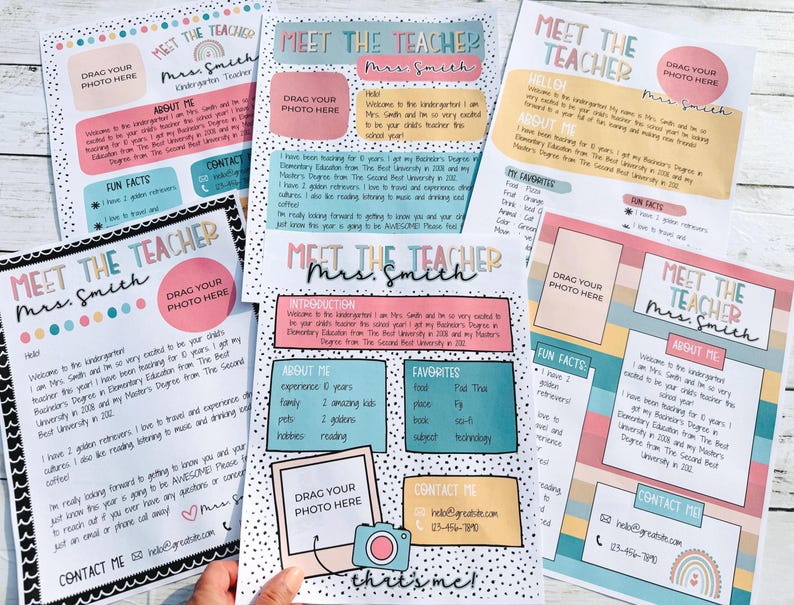 MEET THE TEACHER
Mrs. Smith
Kindergarten Teacher
DRAG YOUR
PHOTO HERE
ABOUT ME
Welcome to the kindergarten! I am Mrs. Smith and I'm so
very excited to be your child's teacher this school year! I
have been teaching for 10 years. I got my Bachelor's Degree in
Elementary Education from The Best University in 2008 and my Master's
Degree from The Second Best University in 2012.
FUN FACTS
I have 2 golden retrievers
I love to travel and
CONTACT
123-456-78
MEET THE TEACHER
Mrs. Smith
DRAG YOUR
PHOTO HERE
Hello!
Welcome to the kindergarten! I am
Mrs. Smith and I'm so very excited
to be your child's teacher this
school year!
I have been teaching for 10 years. I got my Bachelor's Degree in
Elementary Education from The Best University in 2008 and my
Master's Degree from The Second Best University in 2012.
I have 2 golden retrievers. I love to travel and experience other
cultures. I also like reading, listening to music and drinking iced
coffee!
I'm really looking forward to getting to know you and your child
just know this year is going to be AWESOME! Please feel
MEET THE
TEACHER
Mrs. Smith
DRAG YOUR
PHOTO HERE
HELLO!
Welcome to the kindergarten! My name is Mrs. Smith and I'm so
very excited to be your child's teacher this school year! I'm looking
forward to a year full of fun, learning and making new friends!
ABOUT ME
I have been teaching for 10 years. I got my Bachelor's Degree in
Elementary Education from The Best University in 2008 and my
Master's Degree from The Second Best University in 2012.
MY FAVORITES
Food: Pizza
Fruit: Orange
Drink: Iced
Animal: Cat
Color: Green
FUN FACTS
I have 2 golden retrievers
I love to travel and
MEET THE TEACHER
Mrs. Smith
DRAG YOUR
PHOTO HERE
Hello!
Welcome to the kindergarten!
I am Mrs. Smith and I'm so very excited to be your child's
teacher this year! I have been teaching for 10 years. I got my
Bachelor's Degree in Elementary Education from The Best
University in 2008 and my Master's Degree from The Second
Best University in 2012.
I have 2 golden retrievers. I love to travel and experience other
cultures. I also like reading, listening to music and drinking iced
coffee!
I'm really looking forward to getting to know you and your
just know this year is going to be AWESOME! Please feel
to reach out if you ever have any questions or concerns
just an email or phone call away.
Mrs. S
CONTACT ME
hello@greatsite.com
MEET THE TEACHER
Mrs. Smith
INTRODUCTION
Welcome to the kindergarten! I am Mrs. Smith and I'm so very excited to be
your child's teacher this school year! I got my Bachelor's Degree in
Elementary Education from The Best University in 2008 and my Master's
Degree from The Second Best University in 2012.
ABOUT ME
experience: 10 years
family: 2 amazing kids
pets: 2 goldens
hobbies: reading
FAVORITES
food: Pad Thai
place: Fiji
book: sci-fi
subject: technology
DRAG YOUR
PHOTO HERE
that's me!
CONTACT ME
hello@greatsite.com
123-456-7890
DRAG YOUR
PHOTO HERE
MEET THE
TEACHER
Mrs. Smith
FUN FACTS:
I have 2
golden
retrievers!
I love to
ABOUT ME:
Welcome to the kindergarten!
I am Mrs. Smith and I'm so very
excited to be your child's teacher this
school year!
I have been teaching for 10 years. I
got my Bachelor's Degree in
Elementary Education from The Best
University in 2008 and my Master's
Degree from The Second Best
University in 2012.
CONTACT ME!
hello@greatsite.com
123-456-7890